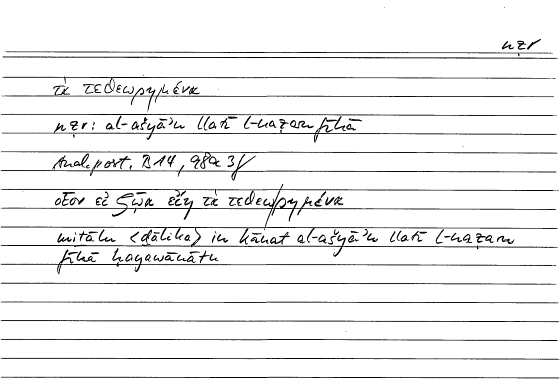 nẓr
τὰ τεθεωρημένα
nẓr: al-ašyāʾu llatī l-naẓaru fīhā
Anal. post. B 14, 98a 3f
οἷον εἰ ζῷα εἴη τὰ τεθεωρημένα
mitālu <ḏālika> in kānat al-ašyāʾu llatī l-naẓaru
fīhā ḥayawānātu